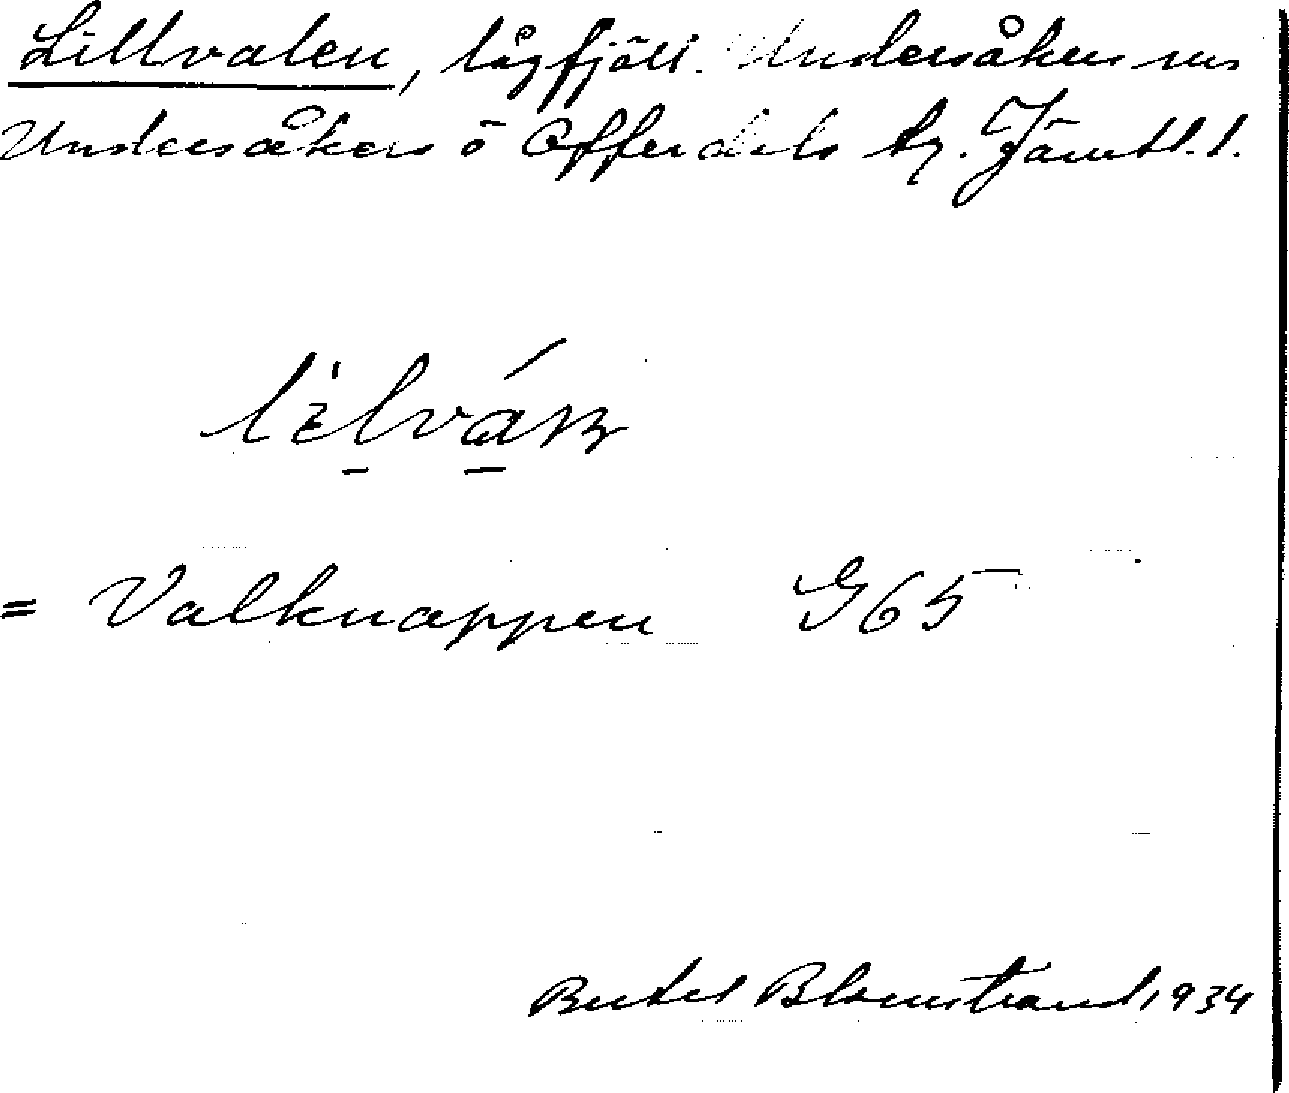 Lillvalen, lågfjäll. Undersåkers sn
Undersåkers o Offerdals tg. Jämtl. l.
= Valknappen G65
Bertel Blomstrand, 1934